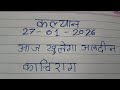 कल्यान
27-01-2026
आज खुलेगा अलादीन
का चिराग